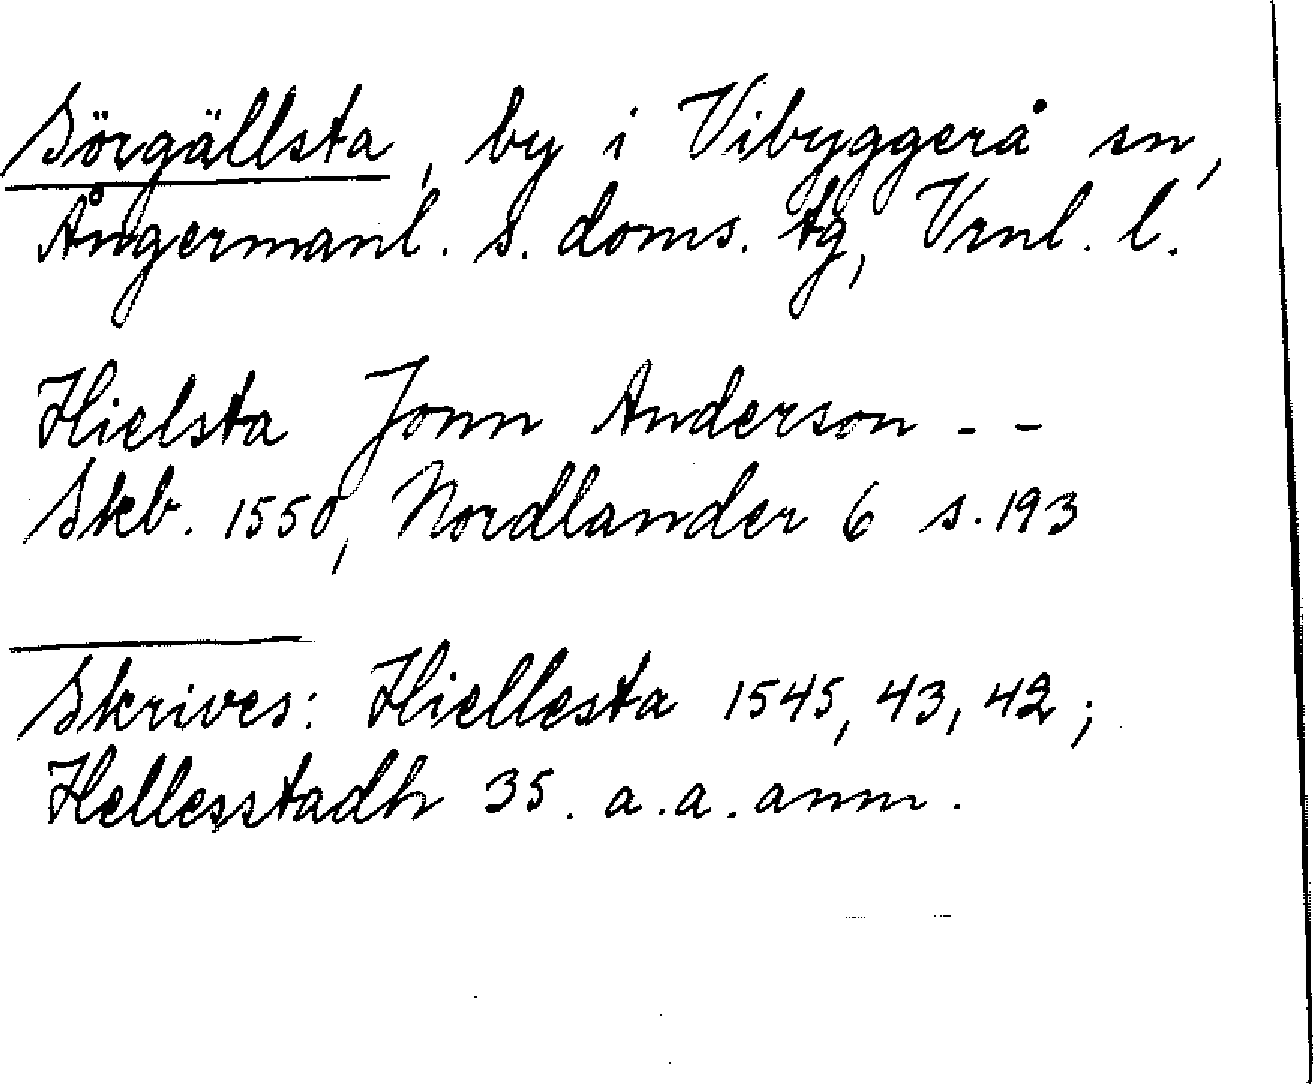 Sörgällsta, by i Vibyggerå sn,
Ångermanl. s. doms. tg, Vrnl. l.
Hielsta Jonn Anderson - -
Skb. 1550, Nordlander 6 s. 193
Skrives: Hiellesta 1545, 43, 42;
Hellesstadh 35. a. a. anm.